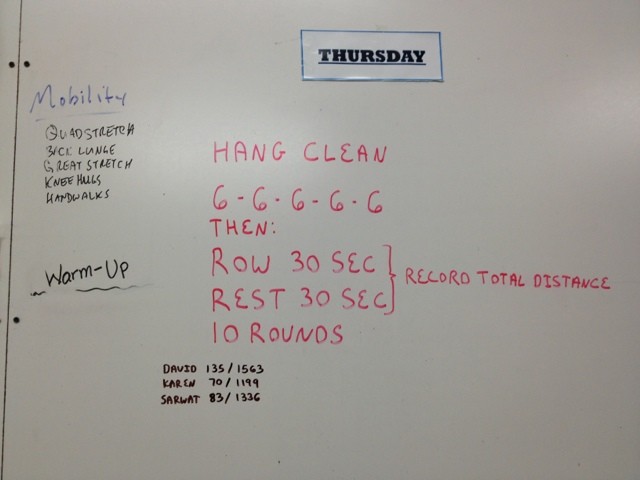 THURSDAY
Mobility
QUADSTRETCH
BICK LUNGE
GREAT STRETCH
KNEE HUGS
HANDWALKS
Warm-Up
HANG CLEAN
6-6-6-6-6
THEN:
ROW 30 SEC
REST 30 SEC
RECORD TOTAL DISTANCE
10 ROUNDS
DAVID 135/1563
KAREN 70/1199
SARWAT 83/1336